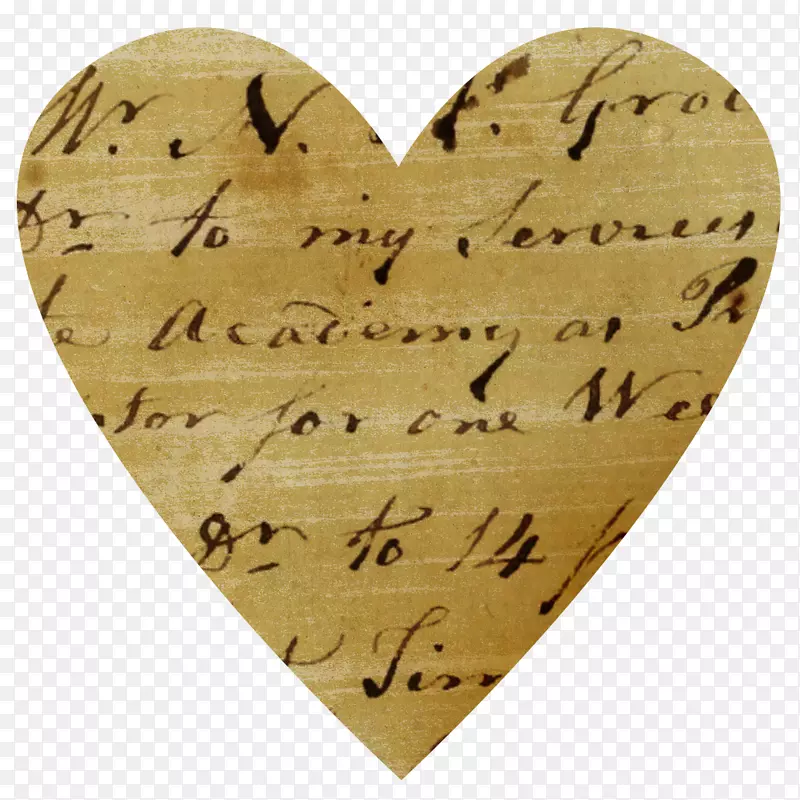 Mr. N. A. Gro
Dr to my Services
te Academy as Pr
ptor for one Wee
Dr to 14
t Tim